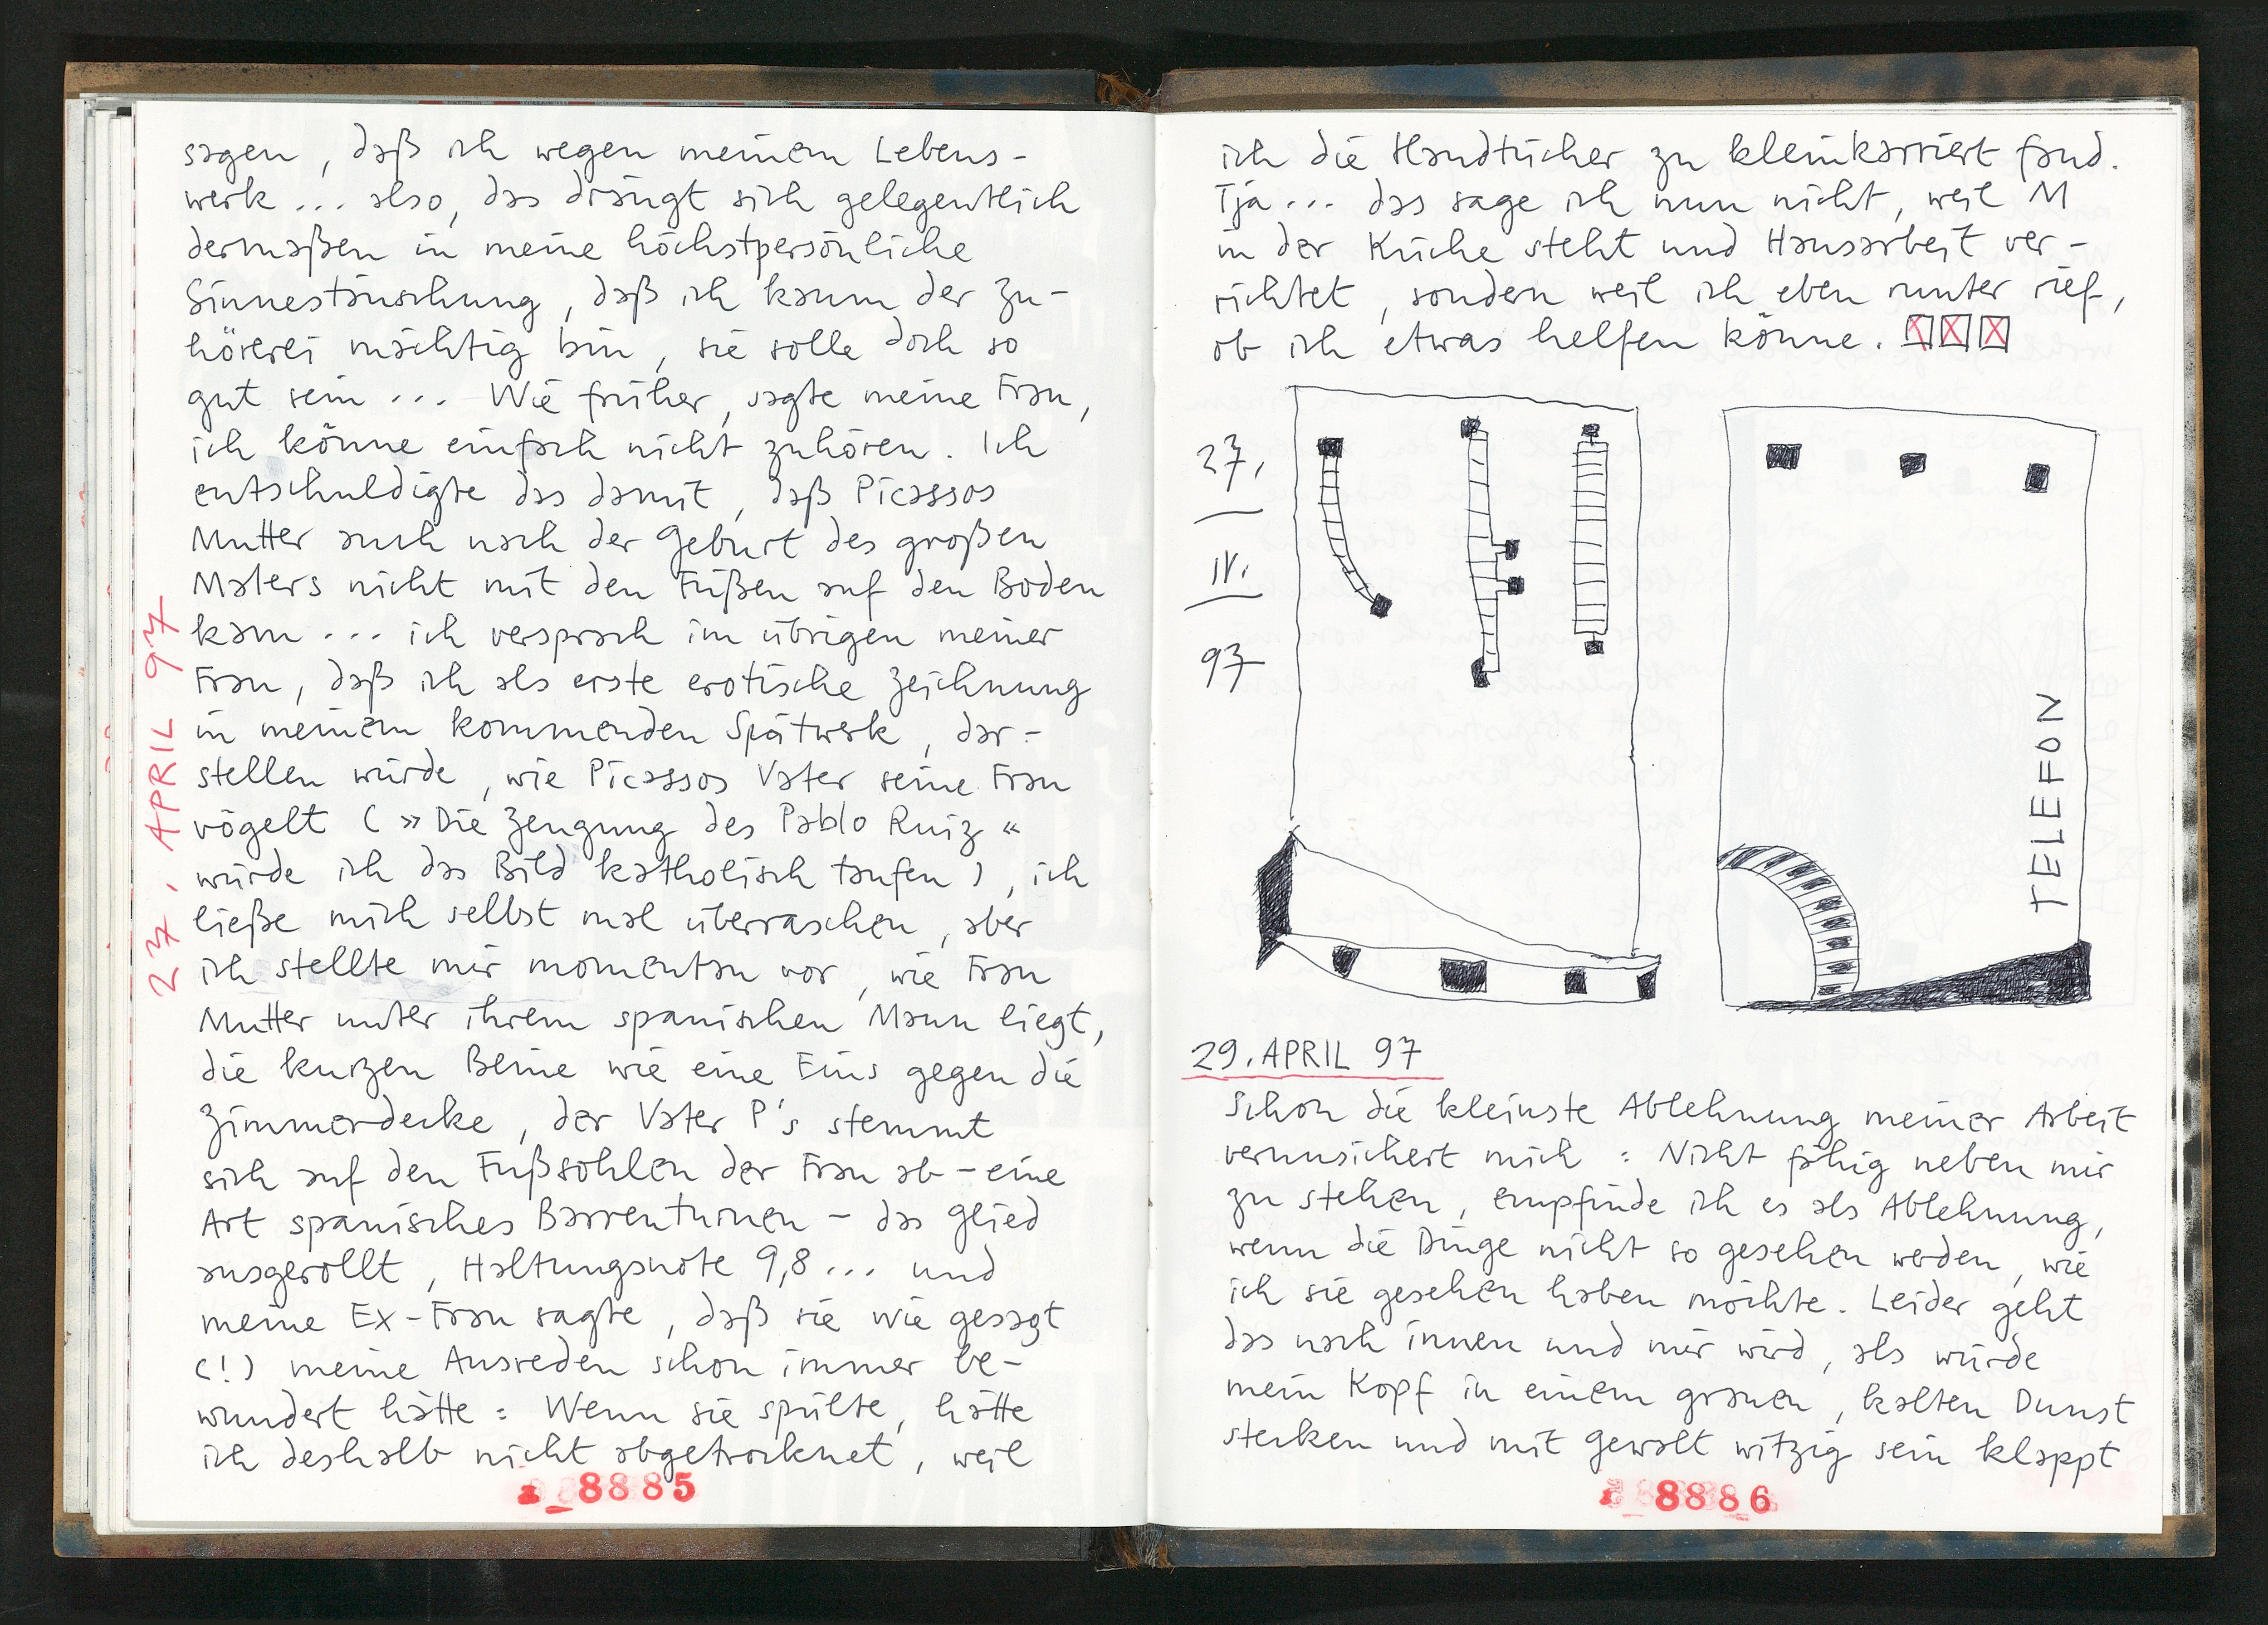 27. APRIL 97
sagen, daß ich wegen meinem Lebens-
werk... also, das drängt sich gelegentlich
dermaßen in meine höchstpersönliche
Sinnestäuschung, daß ich kaum der Zu-
hörerei mächtig bin, sie solle doch so
gut sein... Wie früher, sagte meine Frau,
ich könne einfach nicht zuhören. Ich
entschuldigte das damit, daß Picassos
Mutter auch nach der Geburt des großen
Malers nicht mit den Füßen auf den Boden
kam... ich versprach im übrigen meiner
Frau, daß ich als erste erotische Zeichnung
in meinem kommenden Spätwerk, dar-
stellen würde, wie Picassos Vater seine Frau
vögelt (»Die Zeugung des Pablo Ruiz«
würde ich das Bild katholisch taufen), ich
ließe mich selbst mal überraschen, aber
ich stellte mir momentan vor, wie Frau
Mutter unter ihrem spanischen Mann liegt,
die kurzen Beine wie eine Eins gegen die
Zimmerdecke, der Vater P's stemmt
sich auf den Fußsohlen der Frau ab - eine
Art spanisches Barrenturnen - das Glied
ausgerollt, Haltungsnote 9,8... und
meine Ex-Frau sagte, daß sie wie gesagt
(!) meine Ausreden schon immer be-
wundert hätte: Wenn sie spülte, hätte
ich deshalb nicht abgetrocknet, weil
8885
ich die Handtücher zu kleinkarriert fand.
Tja... das sage ich nun nicht, weil M
in der Küche steht und Hausarbeit ver-
richtet, sondern weil ich eben runter rief,
ob ich etwas helfen könne.
27.
IV.
97
TELEFON
29. APRIL 97
Schon die kleinste Ablehnung meiner Arbeit
verunsichert mich: Nicht fähig neben mir
zu stehen, empfinde ich es als Ablehnung,
wenn die Dinge nicht so gesehen werden, wie
ich sie gesehen haben möchte. Leider geht
das nach innen und mir wird, als würde
mein Kopf in einem grauen, kalten Dunst
stecken und mit Gewalt witzig sein klappt
8886